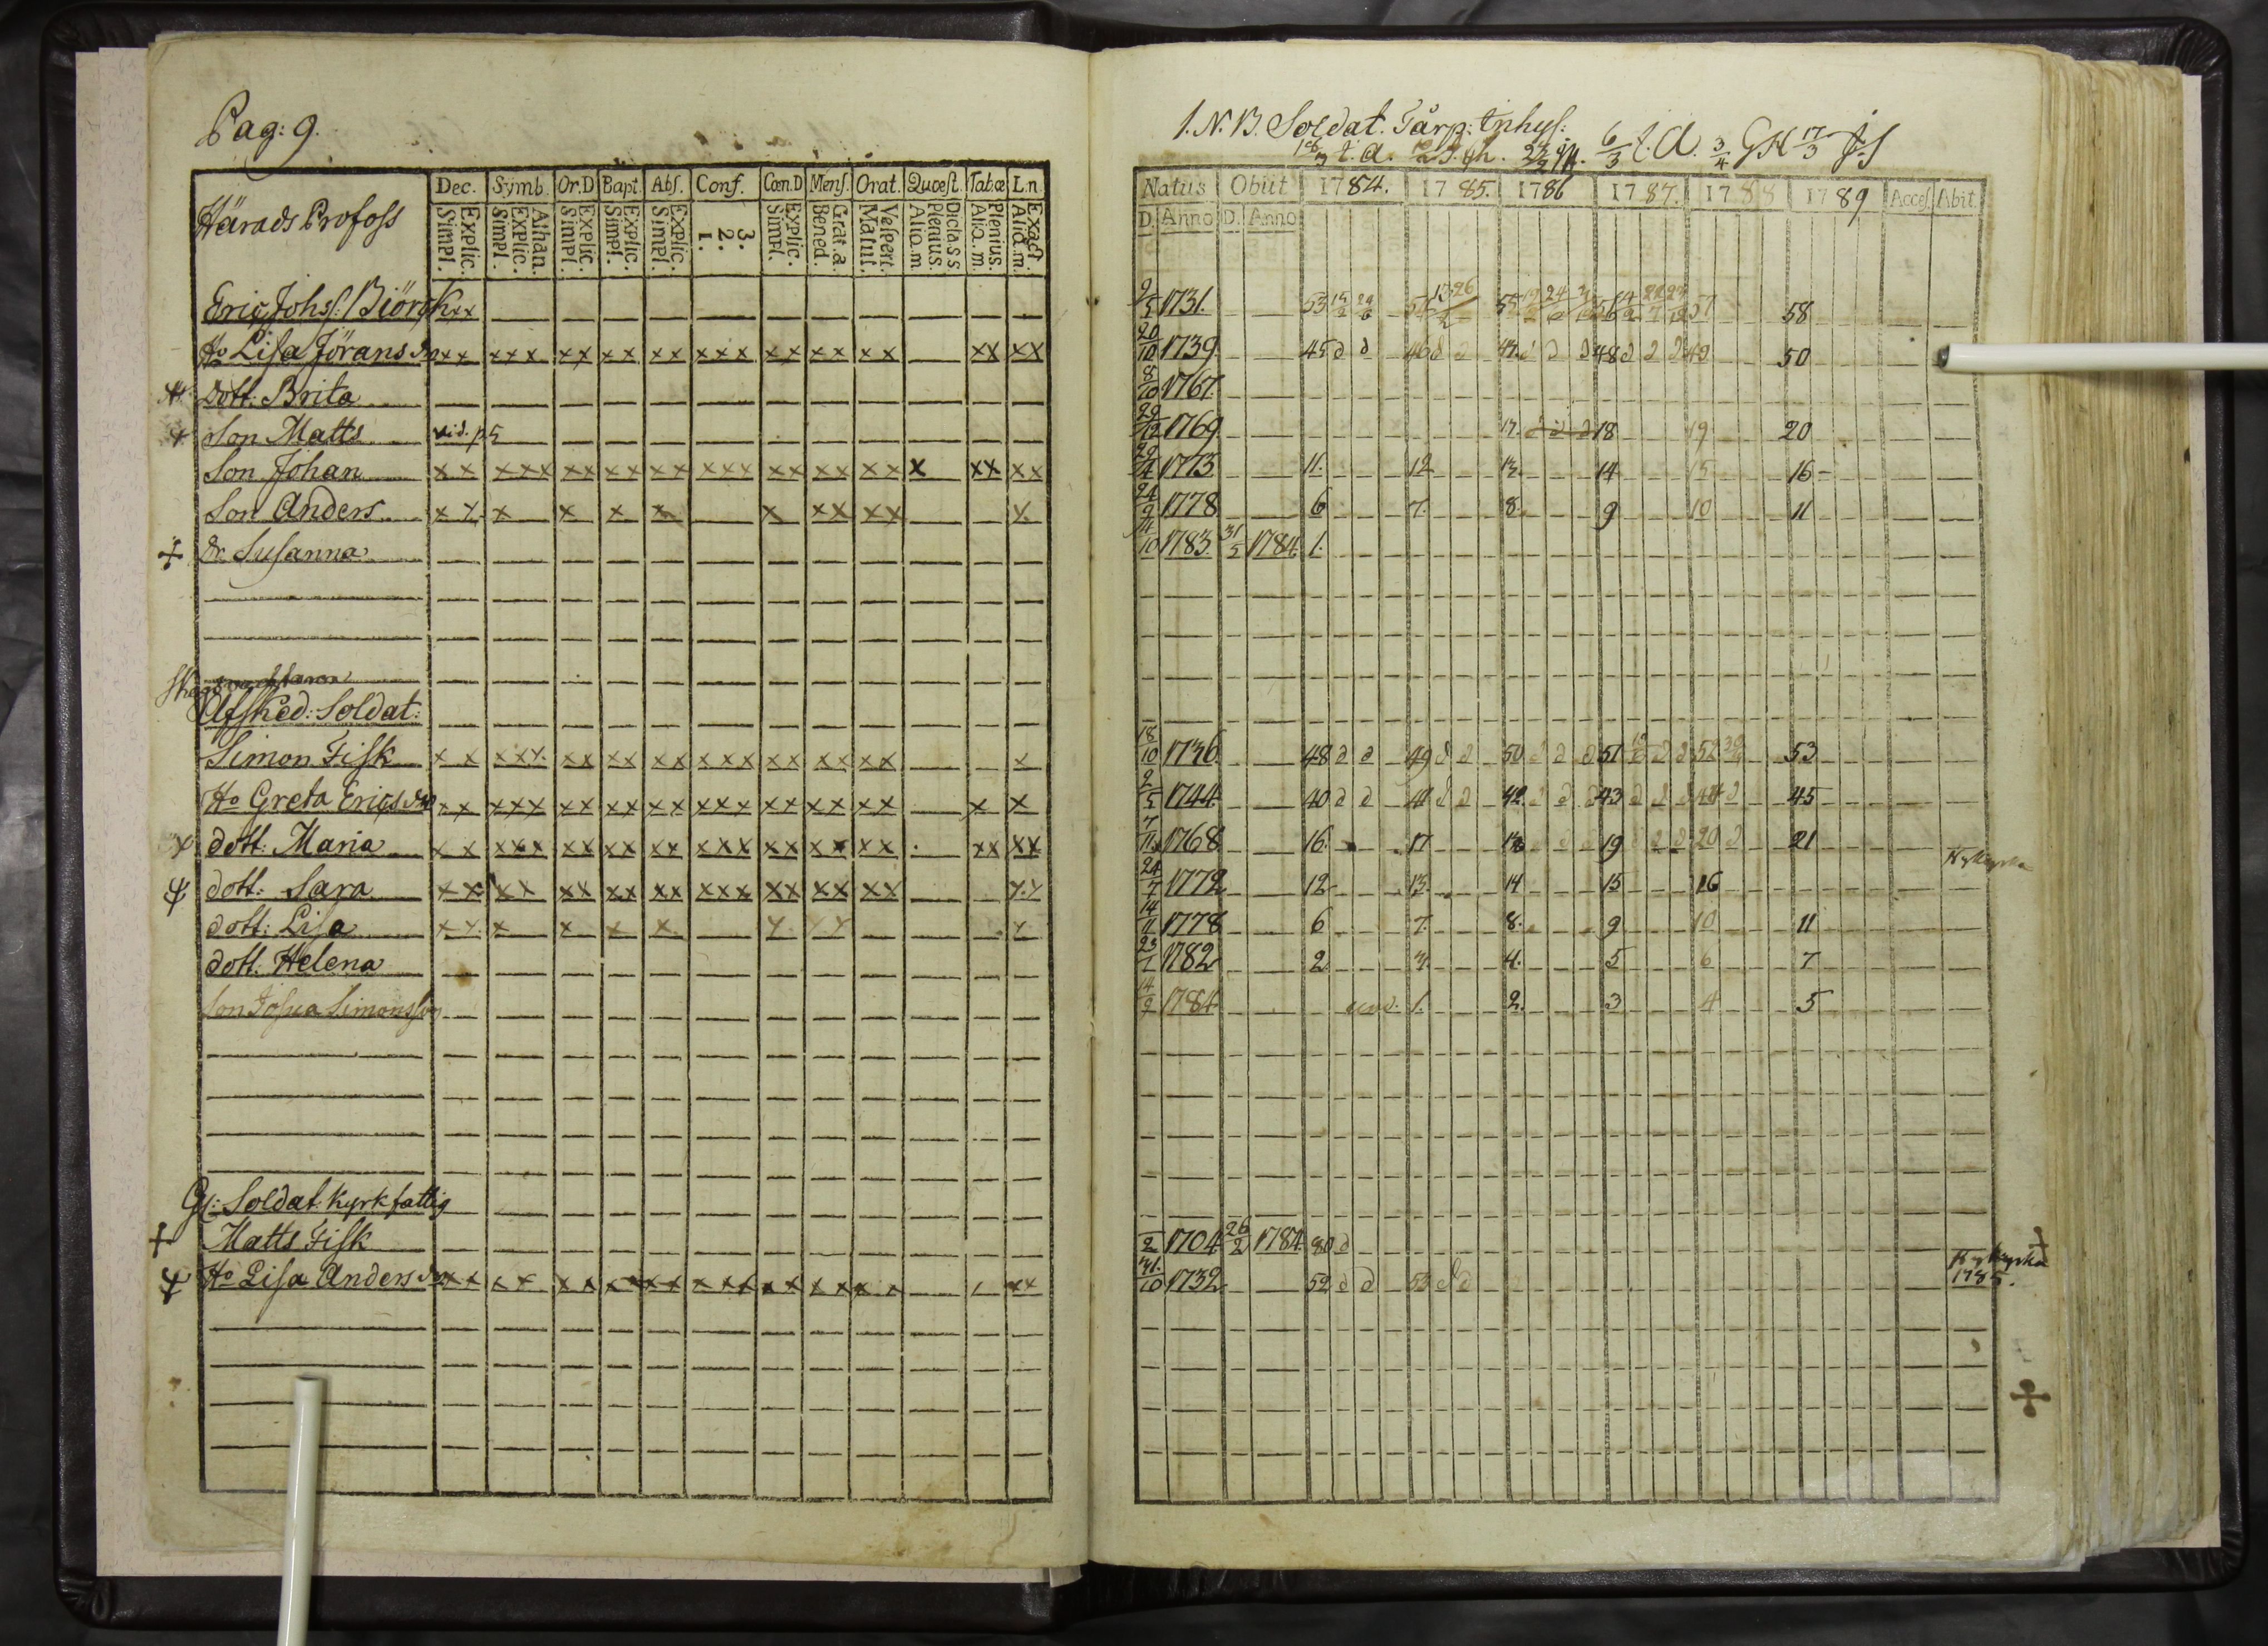 Pag: 9.
Härads Profoss
Dec. Symb. Or.D Bapt. Abs. Conf. Cœn.D Mens. Orat. Quæst. Tab.æ L.n.
Explic. Simpl. Athan. Explic. Simpl. Explic. Simpl. Explic. Simpl. Explic. Simpl. 3. 2. 1. Explic. Simpl. Grat.a. Bened. Vespert. Matut. Dicta S S. Plenius. Aliq.m. Plenius. Aliq.m. Exact. Aliq.m.
Eric Johss: Biörck xx
Ho Lisa Jörans dr xx xxx xx xx xx xxx xx xx xx xx xx
Dott: Brita
Son Matts vid. p. 5
Son Johan xx xxx xx xx xx xxx xx xx xx x xx xx
Son Anders x x x x x x x xx xx x
Dr Susanna
Afsked: Soldat:
Simon Fisk x x xxx xx xx xx xxx xx xx xx x
Ho Greta Erics dr xx xxx xx xx xx xxx xx xx xx x x
dott: Maria x x xxx xx xx xx xxx xx xx xx xx xx
dott: Sara xx xx xx xx xx xxx xx xx xx xx
dott: Lisa x x x x x x x x x x
dott: Helena
Son Josua Simonsson
Gl: Soldat. Kyrkfattig
Matts Fisk
Ho Lisa Anders dr xx xx xx xx xx xxx xx xx xx x xx
1. N. B. Soldat. Tårp: Inhys:
6/3 t. A. 3/4 GH 17/3
Natus Obiit 1784. 1785. 1786 1787. 1788 1789 Acces. Abit.
D. Anno D. Anno
2/5 1731. 53 58
20/10 1739 45 46 48 49 50
8/10 1767.
29/12 1769 17. 18 19 20
1773 11. 12 13. 14 15 16
24/9 1778 6 7. 8. 9 10 11
11/10 1783 31/5 1784. 1.
18/10 1736 48 49 50 51 52 53
2/5 1744 40 41 42 43 44 45
7/11 1768 16. 17 18 19 20 21
24/7 1772 12 13 14 15 16 Nykyrka
14/11 1778 6 7. 8. 9 10 11
23/1 1782 2 3. 4. 5 6 7
14/9 1784 1. 2. 3 4 5
/2 1704 26/2 1784. 80
31/10 1732 52 53 Nykyrka
1785.